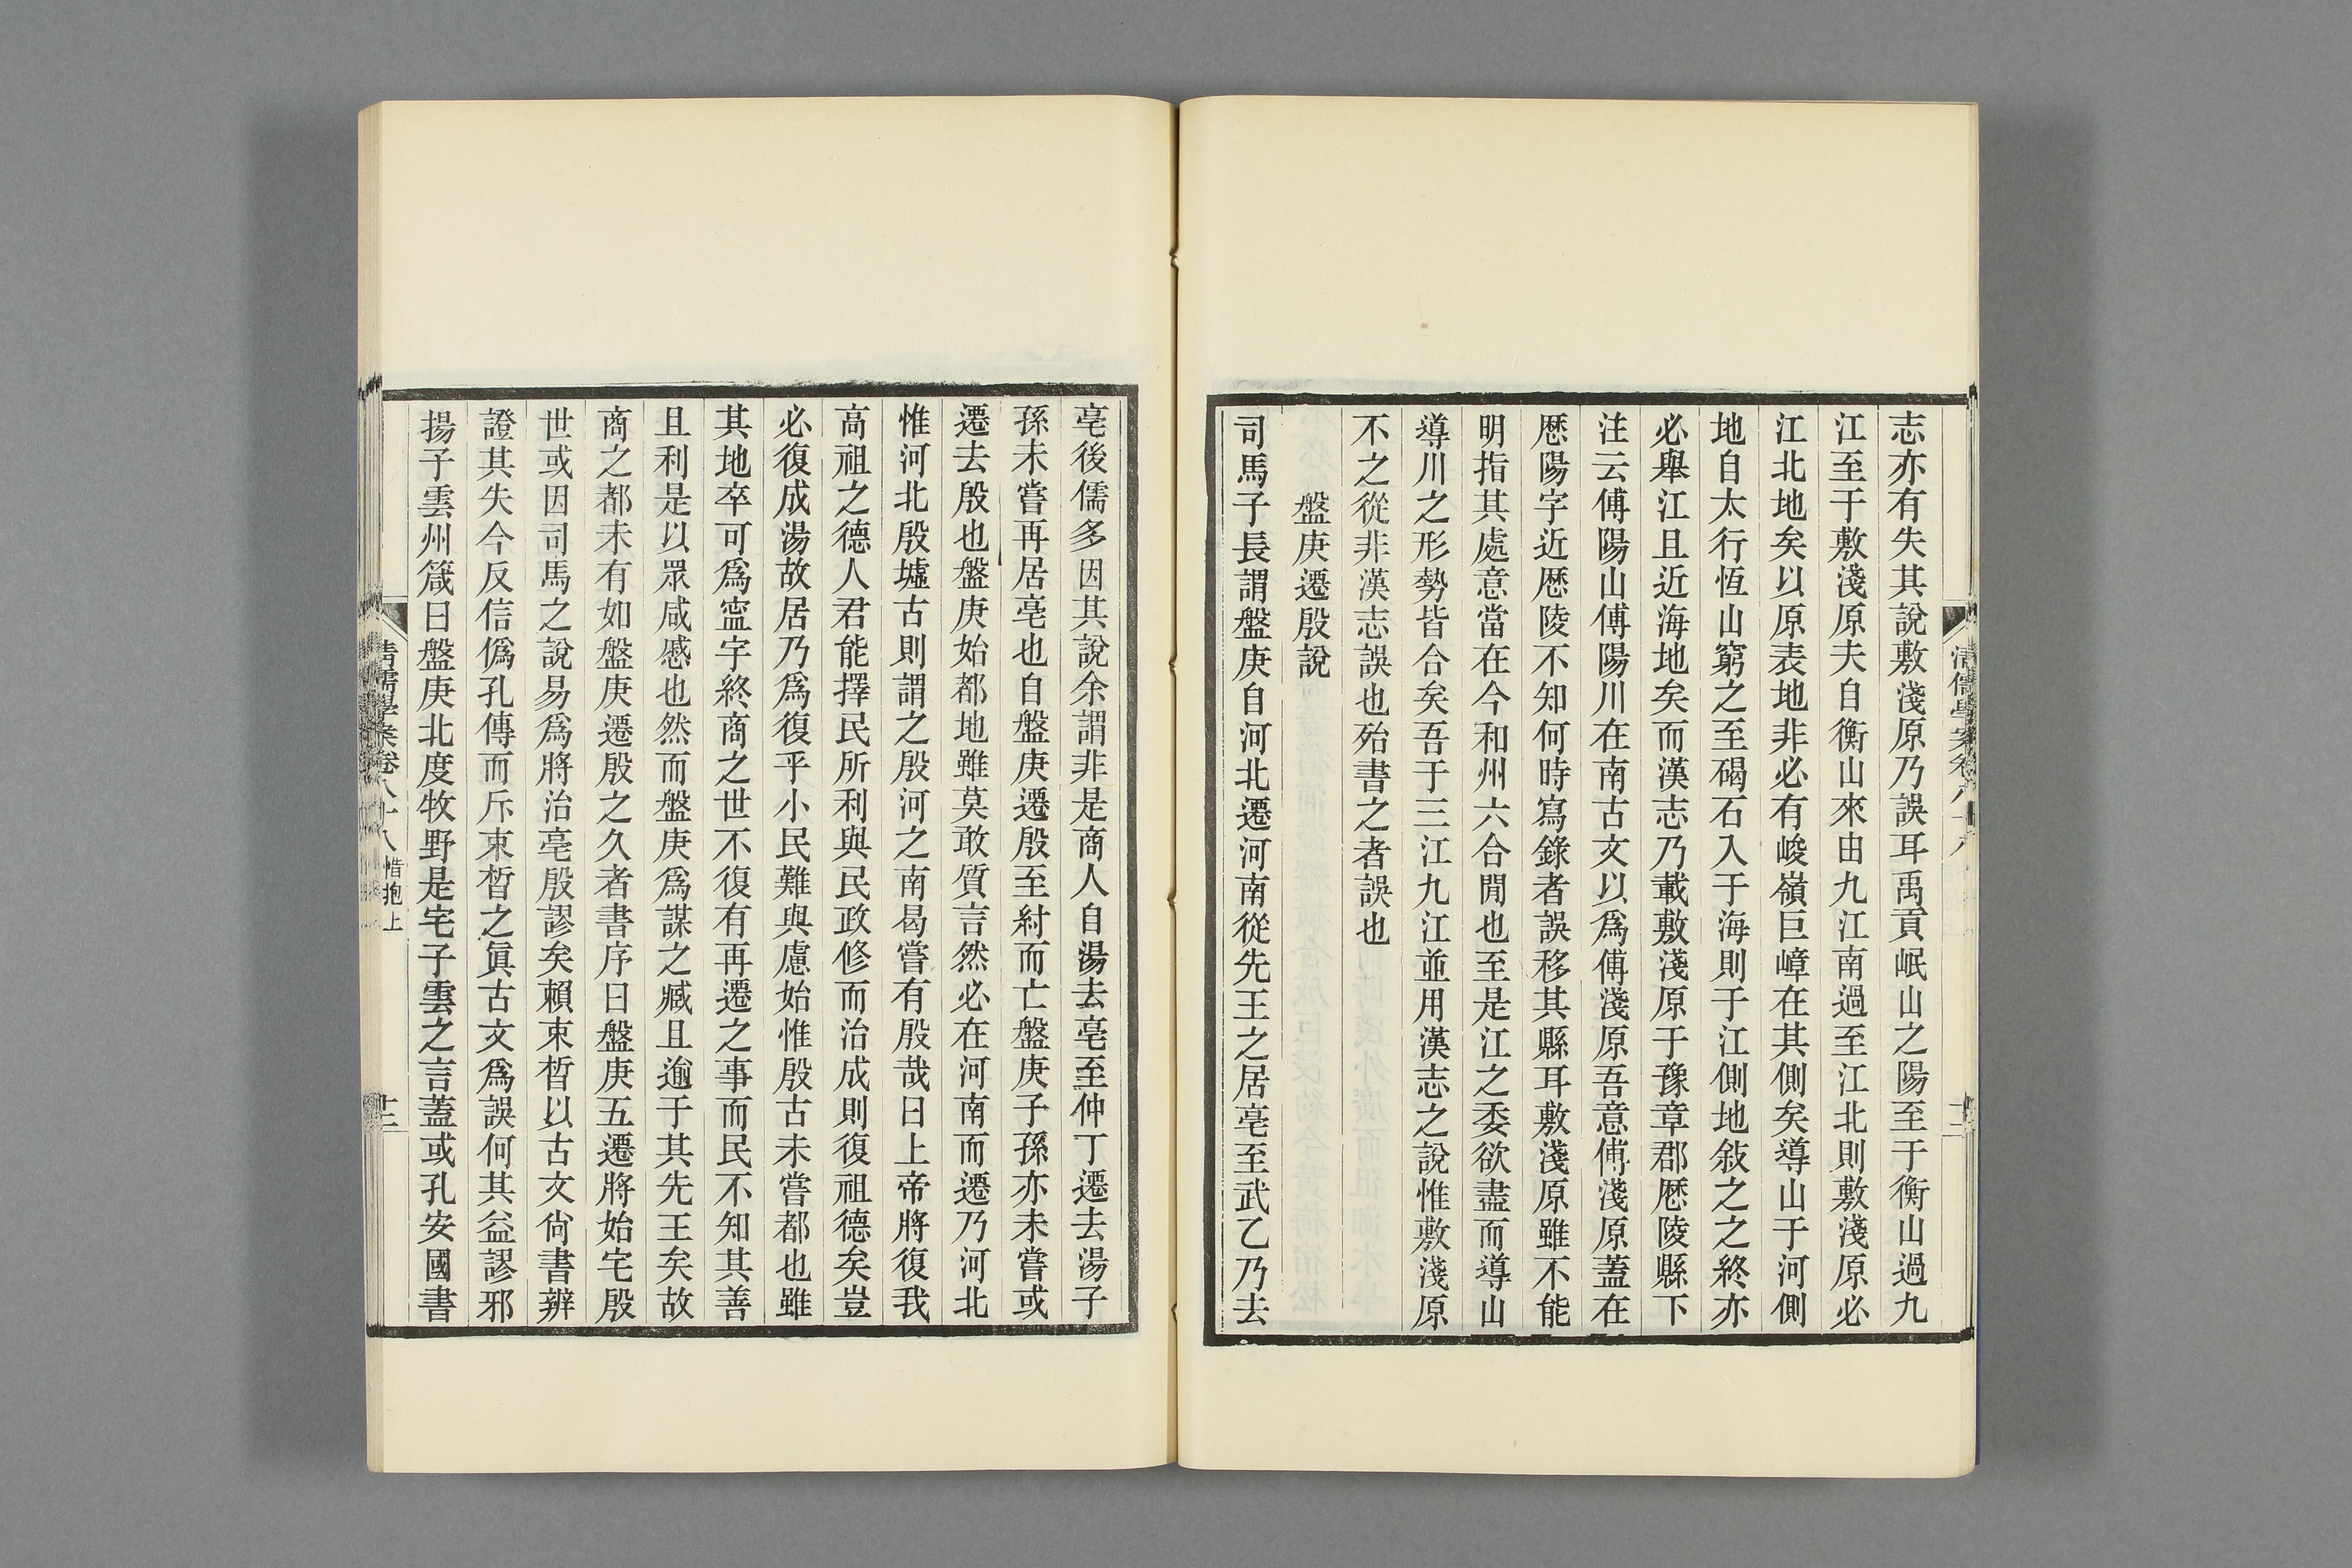 志亦有失其說敷淺原乃誤耳禹貢岷山之陽至于衡山過九
江至于敷淺原夫自衡山來由九江南過至江北則敷淺原必
江北地矣以原表地非必有峻嶺巨嶂在其側矣導山于河側
地自太行恆山窮之至碣石入于海則于江側地敍之之終亦
必舉江且近海地矣而漢志乃載敷淺原于豫章郡厯陵縣下
注云傅陽山傅陽川在南古文以爲傅淺原吾意傅淺原蓋在
厯陽字近厯陵不知何時寫錄者誤移其縣耳敷淺原雖不能
明指其處意當在今和州六合閒也至是江之委欲盡而導山
導川之形勢皆合矣吾于三江九江並用漢志之說惟敷淺原
不之從非漢志誤也殆書之者誤也
盤庚遷殷說
司馬子長謂盤庚自河北遷河南從先王之居亳至武乙乃去
亳後儒多因其說余謂非是商人自湯去亳至仲丁遷去湯子
孫未嘗再居亳也自盤庚遷殷至紂而亡盤庚子孫亦未嘗或
遷去殷也盤庚始都地雖莫敢質言然必在河南而遷乃河北
惟河北殷墟古則謂之殷河之南曷嘗有殷哉曰上帝將復我
高祖之德人君能擇民所利與民政修而治成則復祖德矣豈
必復成湯故居乃爲復乎小民難與慮始惟殷古未嘗都也雖
其地卒可爲寍宇終商之世不復有再遷之事而民不知其善
且利是以眾咸慼也然而盤庚爲謀之臧且逾于其先王矣故
商之都未有如盤庚遷殷之久者書序曰盤庚五遷將始宅殷
世或因司馬之說易爲將治亳殷謬矣賴束晳以古文尙書辨
證其失今反信僞孔傳而斥束晳之眞古文爲誤何其益謬邪
揚子雲州箴曰盤庚北度牧野是宅子雲之言蓋或孔安國書
清儒學案卷八十八 惜抱上 十二